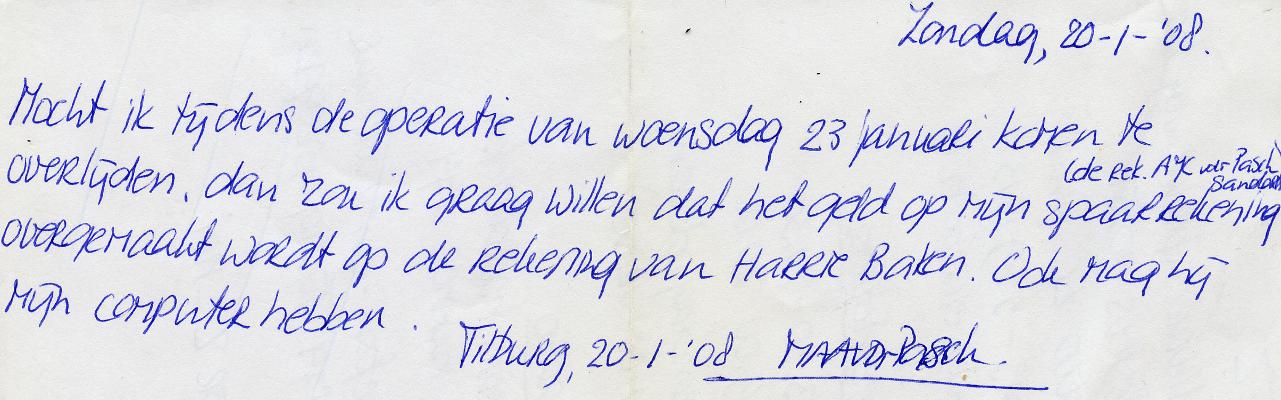 Zondag, 20-1-'08.
Mocht ik tijdens de operatie van woensdag 23 januari komen te
(de rek. A*K v.d. Pasch
overlijden, dan zou ik graag willen dat het geld op mijn spaarrekening
overgemaakt wordt op de rekening van Harrie Baken. Ook mag hij
mijn computer hebben.
Tilburg, 20-1-'08